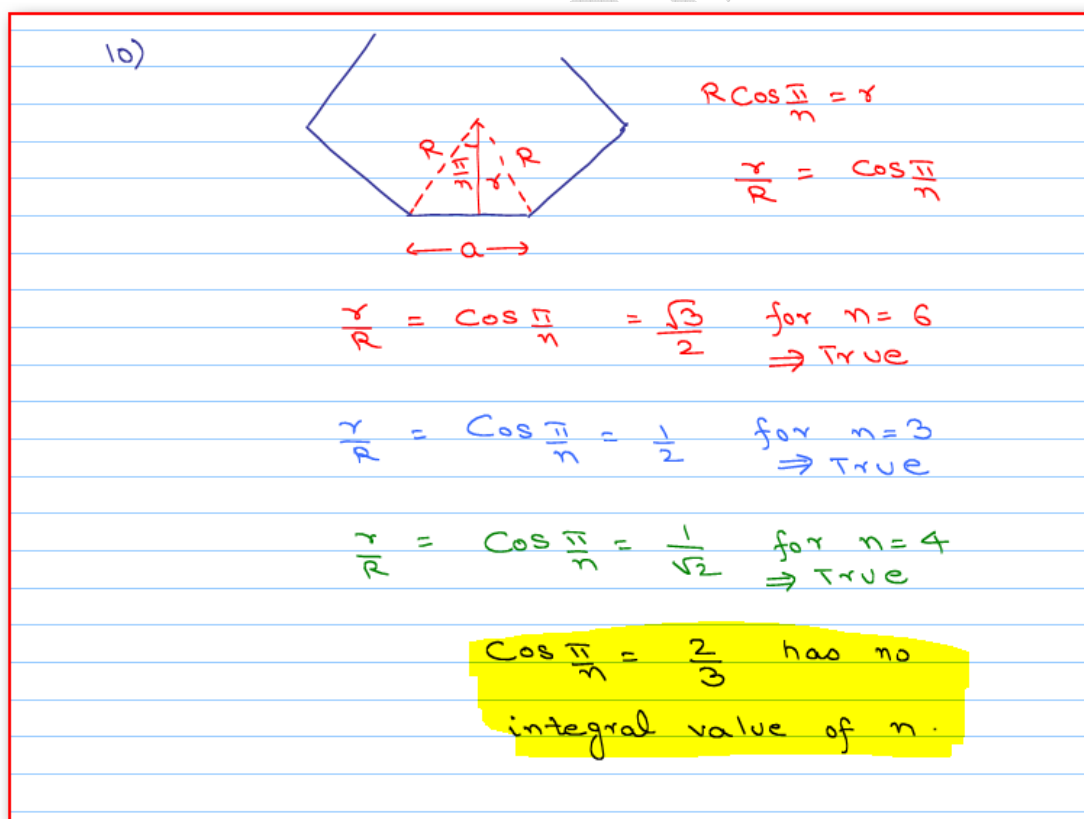 10)
R Cos π/n = r
R
π/n
r
R
r/R = Cos π/n
a
r/R = Cos π/n = √3/2 for n = 6
⇒ True
r/R = Cos π/n = 1/2 for n = 3
⇒ True
r/R = Cos π/n = 1/√2 for n = 4
⇒ True
Cos π/n = 2/3 has no
integral value of n.